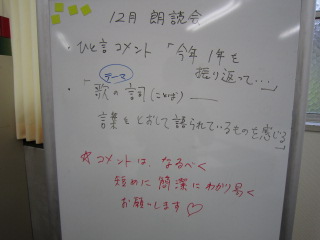 12月 朗読会
・ひと言コメント 「今年1年を
振り返って…」
テーマ
・「歌の詞(ことば)――
言葉をとおして語られているものを感じる」
☆コメントは、なるべく
短めに 簡潔に わかり易く
お願いします♡